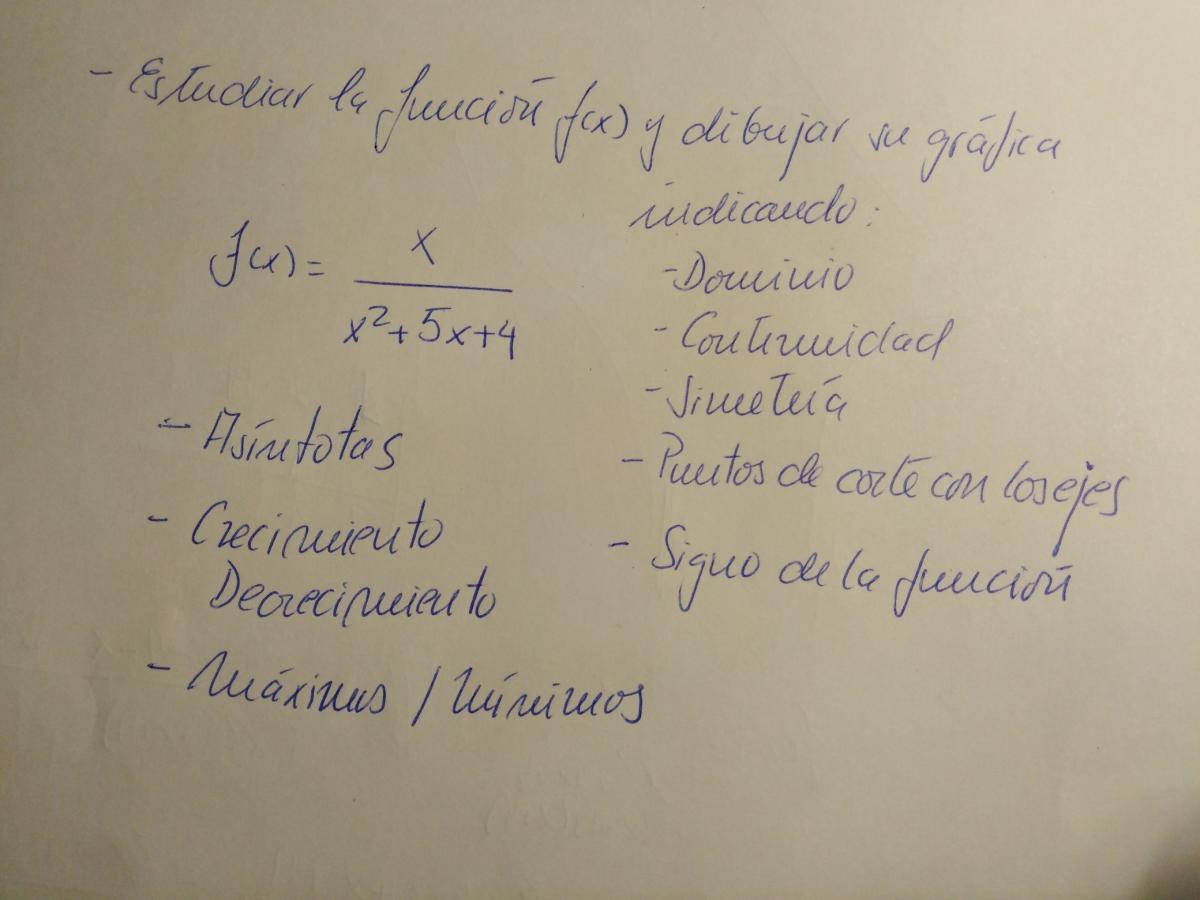 - Estudiar la función f(x) y dibujar su gráfica
indicando:
f(x) = x / x²+5x+4
- Dominio
- Continuidad
- Simetría
- Puntos de corte con los ejes
- Signo de la función
- Asíntotas
- Crecimiento
Decrecimiento
- Máximos / Mínimos